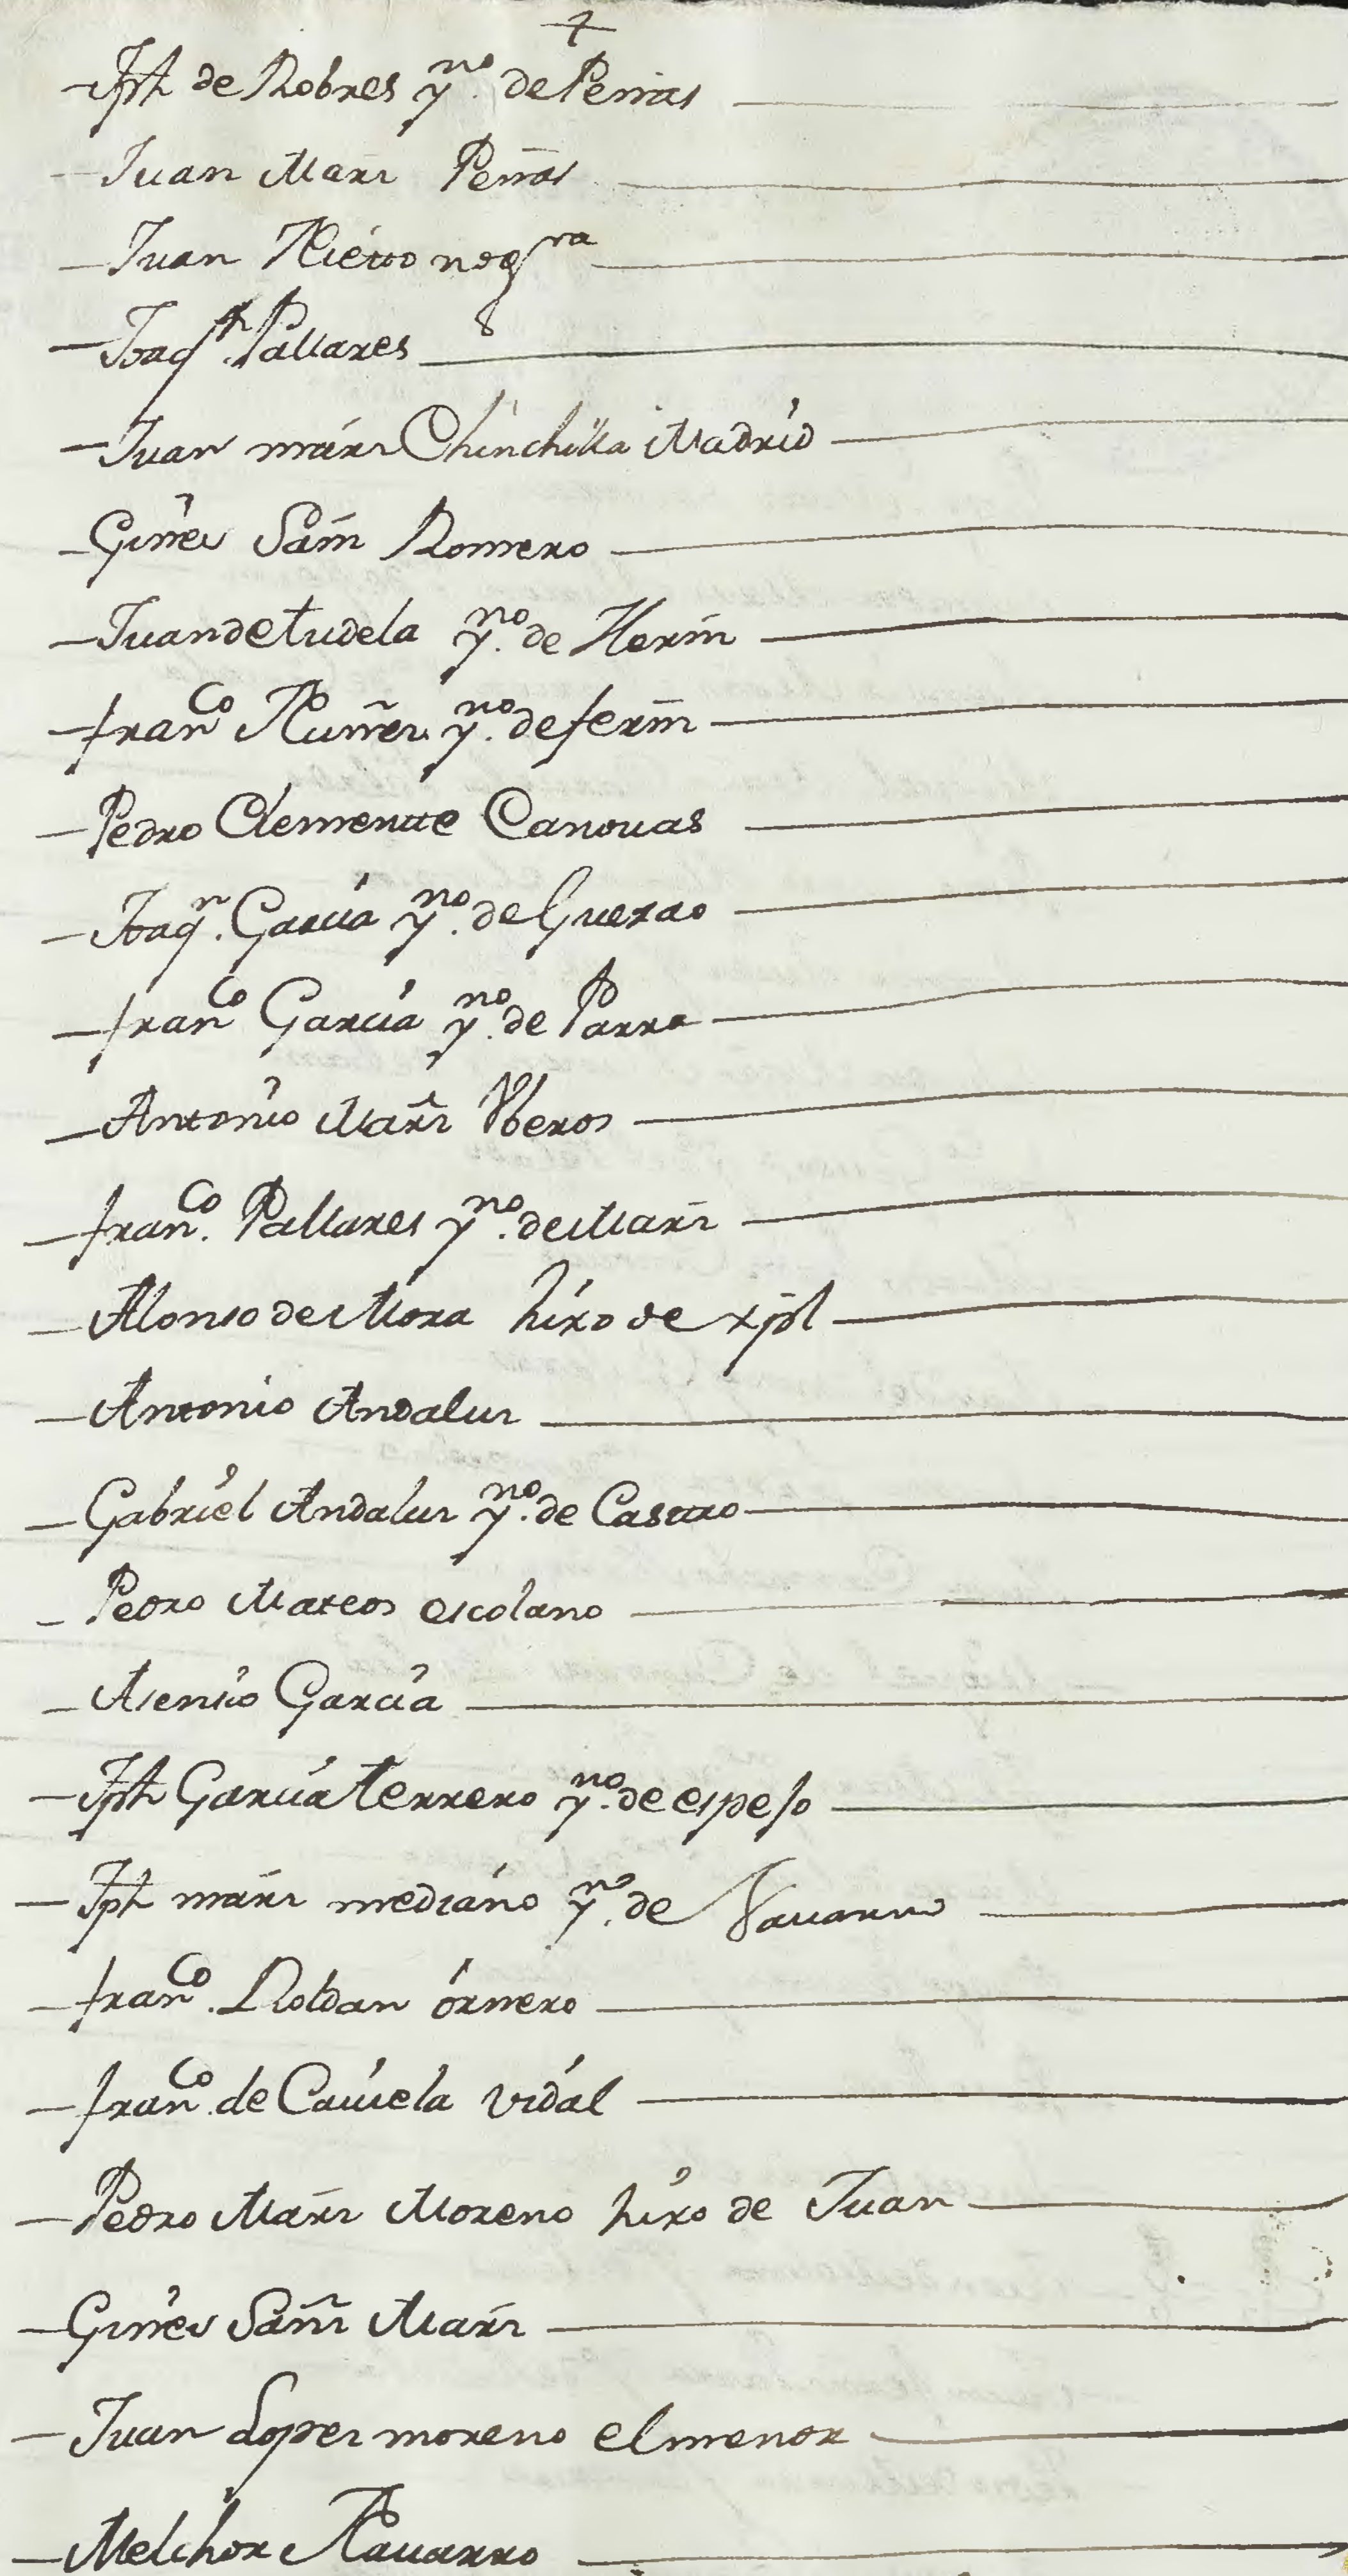 Jph de Robres yno. de Penas
Juan Marz Penas
Juan Nietto negra
Joaqn. Pallares
Juan marz Chinchilla Madrid
Gines Sam Romero
Juan de tudela yno. de Herm
franco Nuñez yno. de ferm
Pedro Clementte Canouas
Joaqn. Garcia yno. de Guerao
franco Garcia yno. de Parra
Antonio Marz Vberos
franco. Pallares yno. de Marz
Alonso de Mora hixo de xpl
Antonio Andaluz
Gabriel Andaluz yno. de Casttro
Pedro Mateos escolano
Asensio Garcia
Jph Garcia terrero yno. de espejo
Jph marz mediano yno. de Nauarro
franco. Roldan ornero
franco. de Cauela vidal
Pedro Marz Moreno hixo de Juan
Gines Sanz Marz
Juan Lopez moreno el menor
Melchor Nauarro